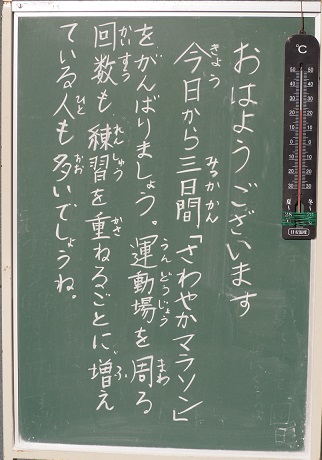 おはようございます
今日から三日間「さわやかマラソン」
をがんばりましょう。運動場を周る
回数も練習を重ねるごとに、増え
ている人も多いでしょうね。
きょう
みっかかん
うんどうじょう
まわ
かいすう
れんしゅう
かさ
ふ
ひと
おお
℃
50 50
40 40
30 30
20 20
10 10
0 0
10 10
20 20
30 30
夏 冬